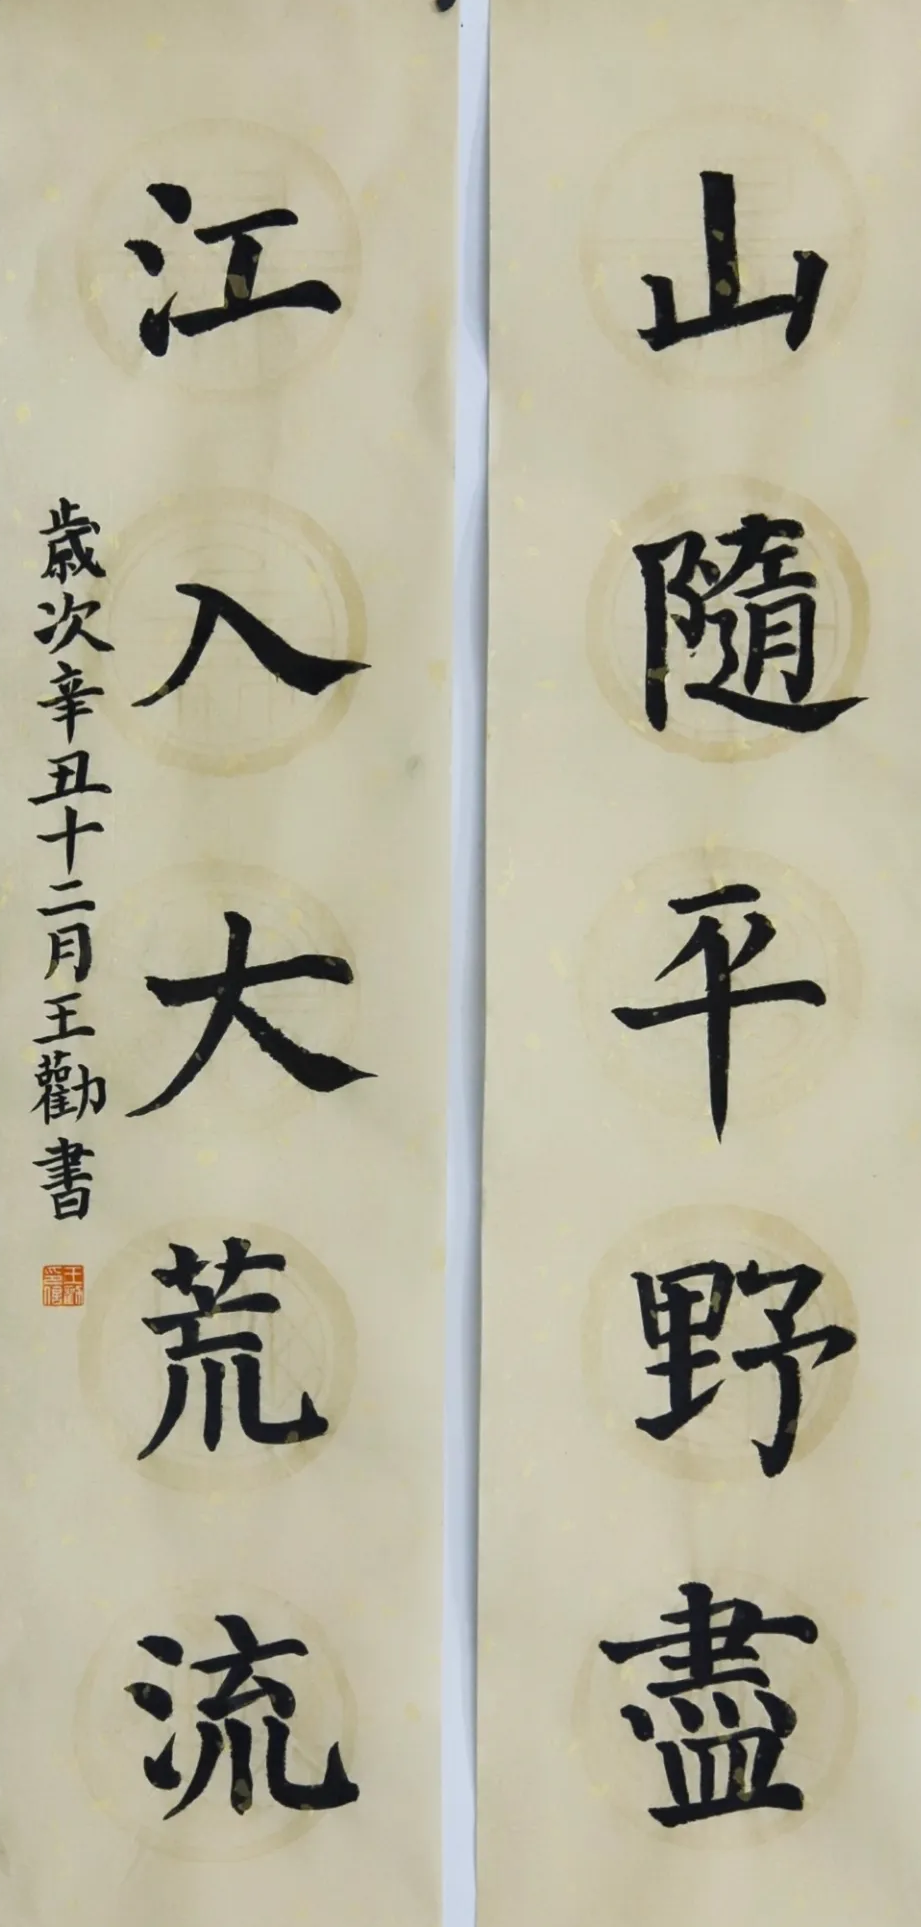 山隨平野盡
江入大荒流
歲次辛丑十二月王勸書